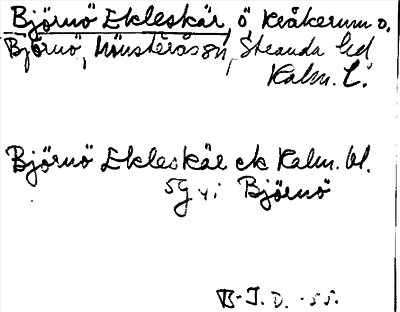 Björnö Ekleskär, ö, Kråkerum o.
Björnö, Mönsterås sn, Stranda hd
Kalm. L.
Björnö Ekleskär ek Kalm. bl.
5g v. Björnö
B-I.D. -55.